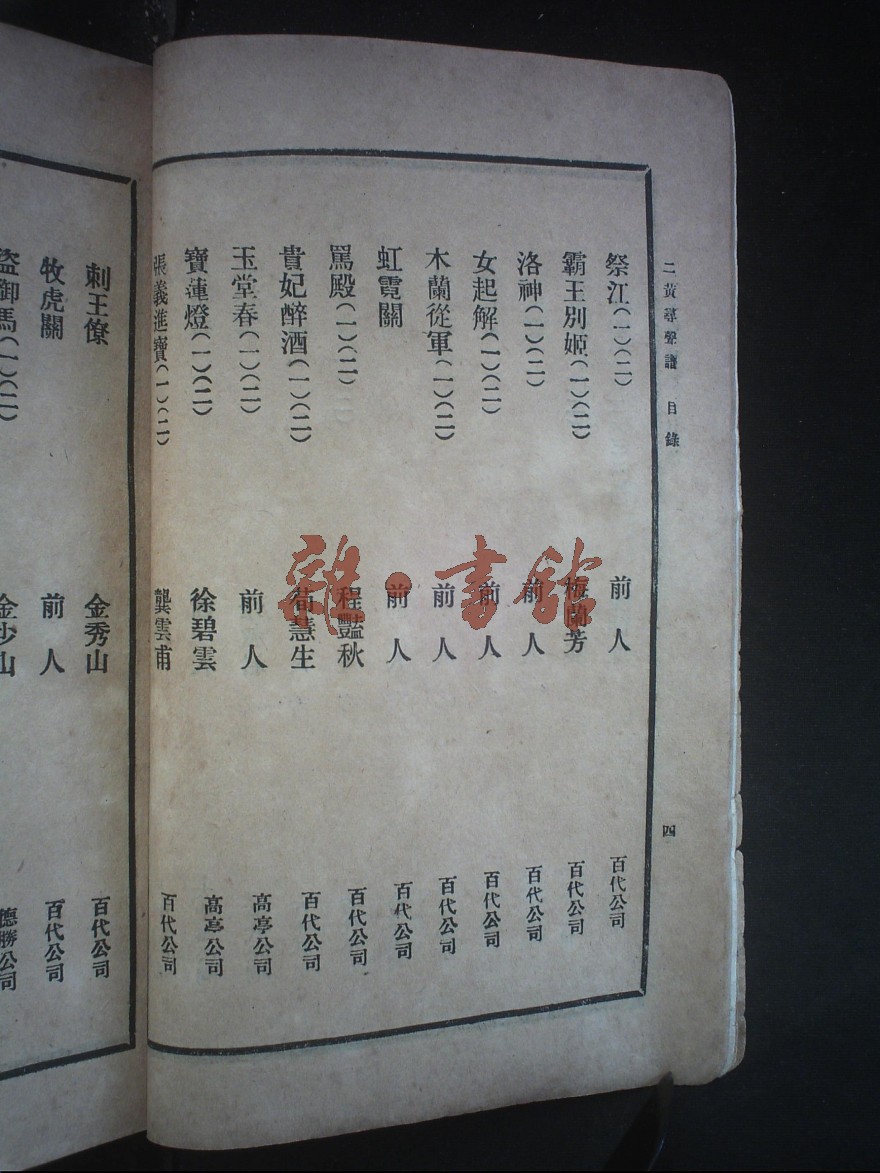 二黃尋聲譜 目錄
四
祭江(一)(二) 前人 百代公司
霸王別姬(一)(二) 梅蘭芳 百代公司
洛神(一)(二) 前人 百代公司
女起解(一)(二) 前人 百代公司
木蘭從軍(一)(二) 前人 百代公司
虹霓關 前人 百代公司
罵殿(一)(二) 程豔秋 百代公司
貴妃醉酒(一)(二) 荀慧生 百代公司
玉堂春(一)(二) 前人 高亭公司
寶蓮燈(一)(二) 徐碧雲 高亭公司
張義進寶(一)(二) 龔雲甫 百代公司
刺王僚 金秀山 百代公司
牧虎關 前人 百代公司
盜御馬(一)(二) 金少山 德勝公司
雜·書館